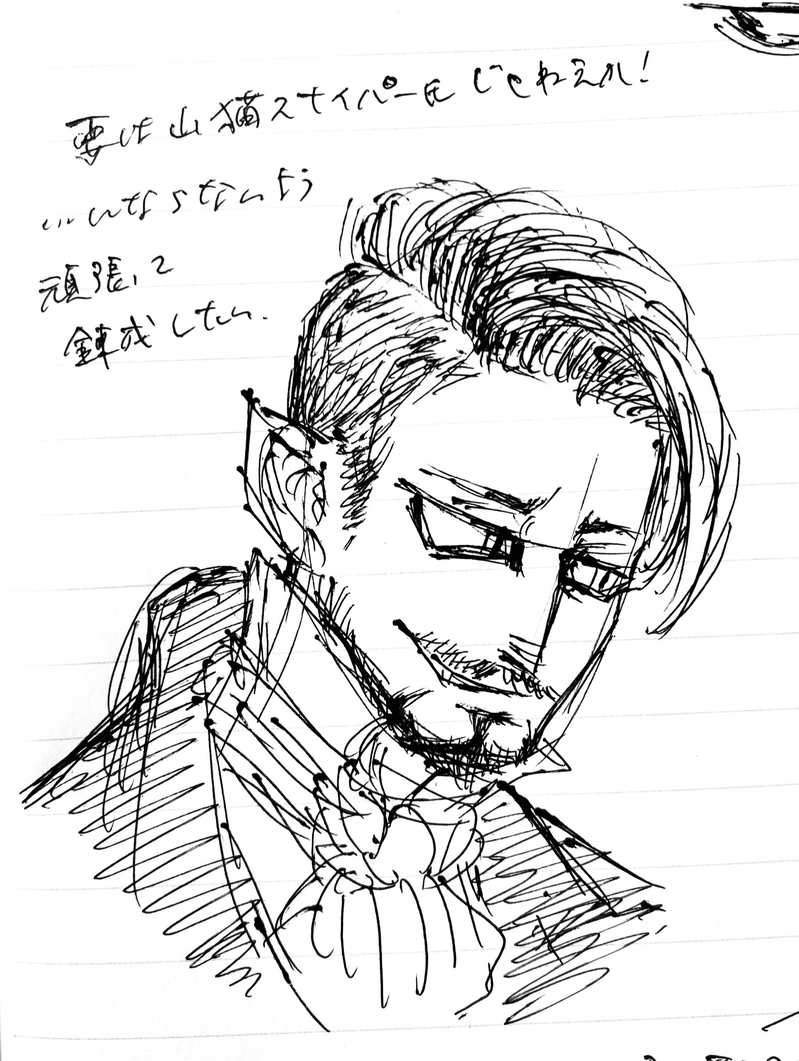 要は山猫スナイパー氏じゃねえか!
…にならないよう
頑張って
錬成したい.